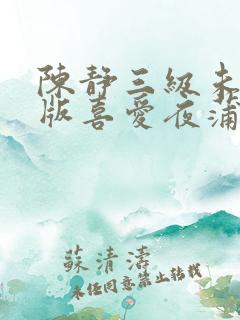 陳靜三級未
版喜愛夜蒲
蘇清濤
未经同意禁止转载